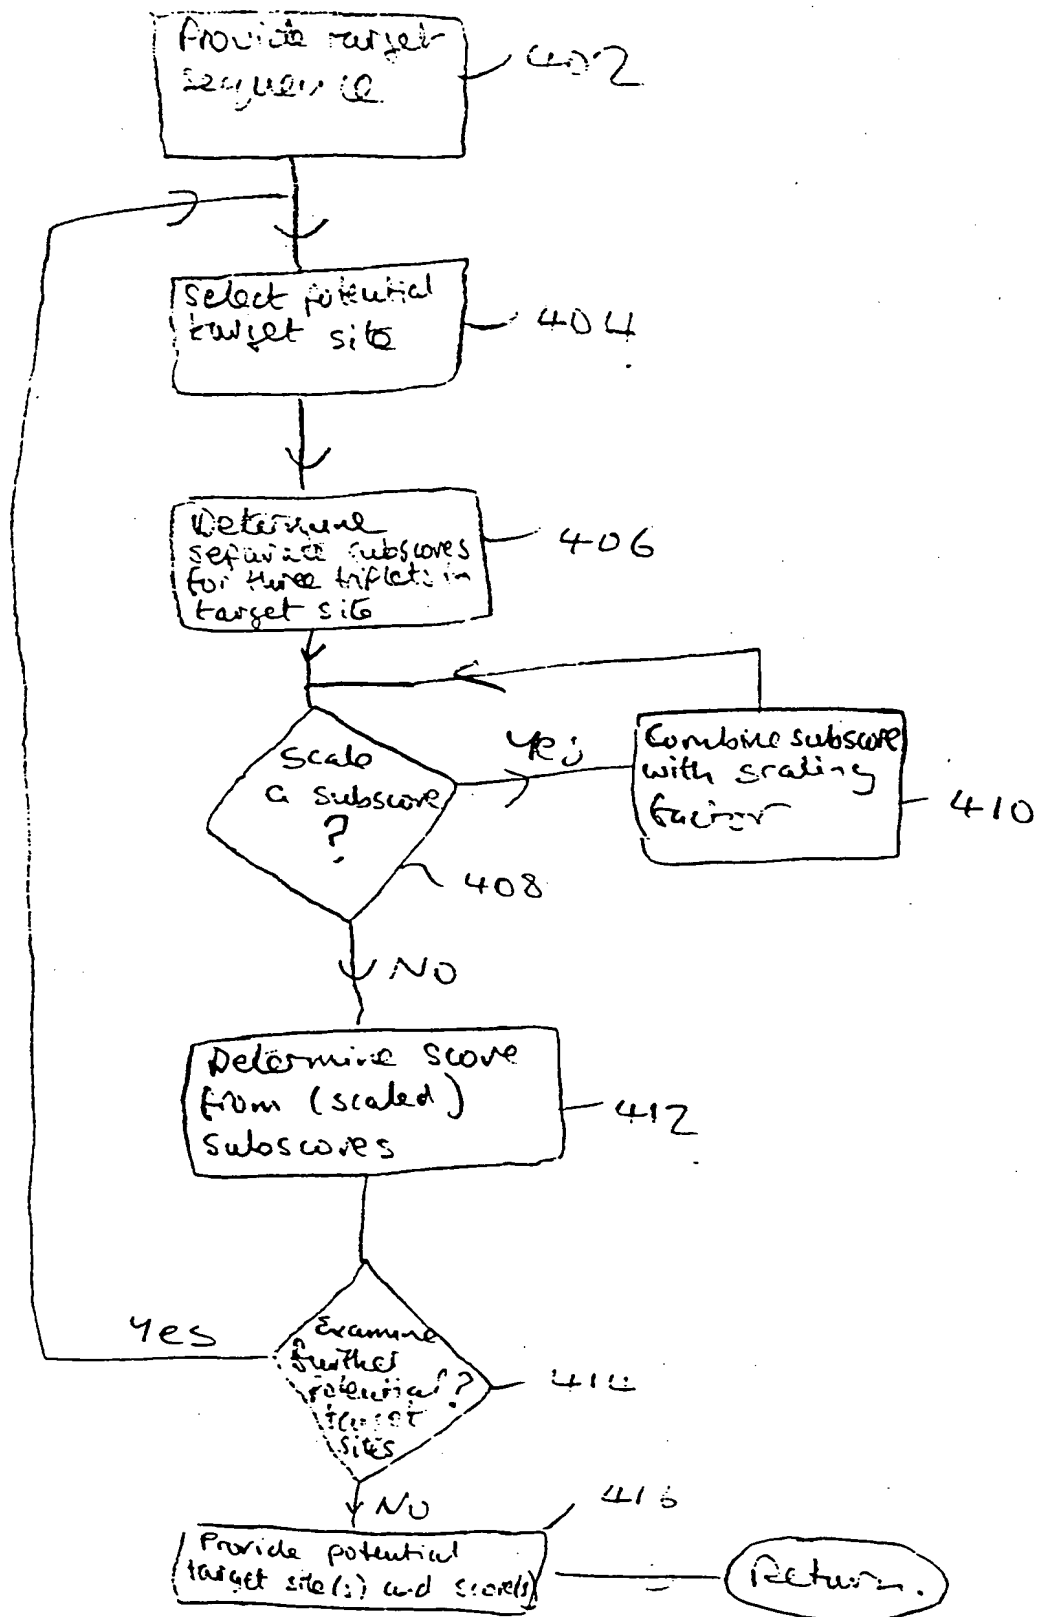 Provide target
sequence
402
Select potential
target site
404
Determine
separate subscores
for three triplets in
target site
406
Scale
a subscore
?
408
Yes
Combine subscore
with scaling
factor
410
NO
Determine score
from (scaled)
subscores
412
Yes
Examine
further
potential ?
target
sites
414
NO
416
Provide potential
target site(s) and score(s)
Return.